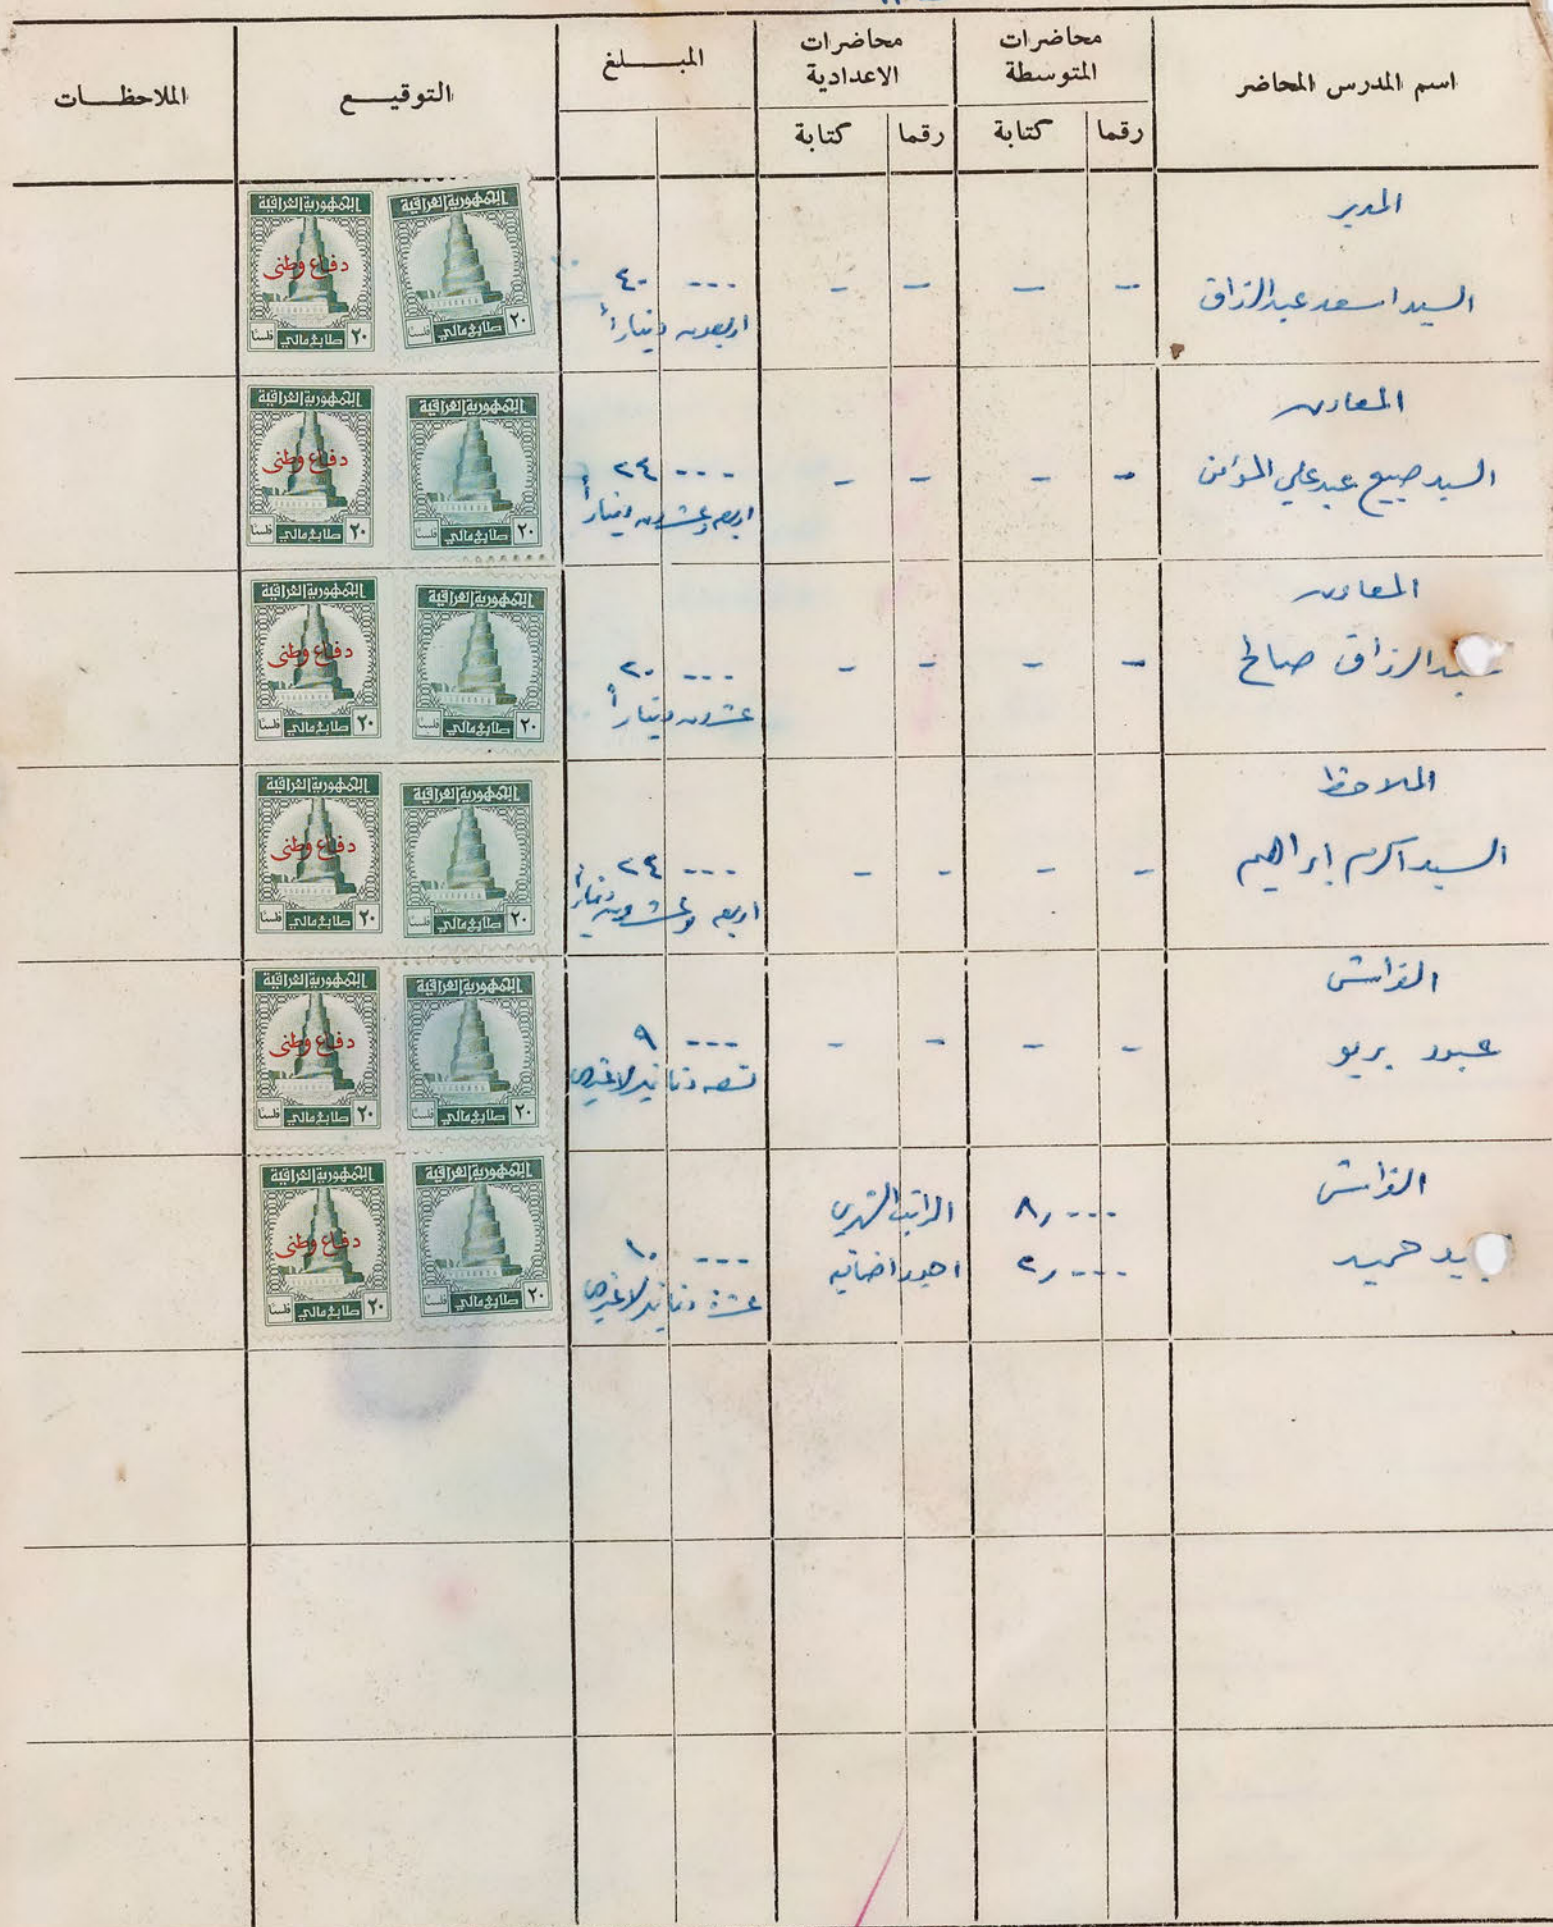 اسم المدرس المحاضر
محاضرات المتوسطة
محاضرات الاعدادية
المبـــلغ
التوقيـــع
الملاحظـــات
رقما
كتابة
رقما
كتابة
المدير
السيد اسعد عبدالرزاق
- - - -
--- ٤٠
اربعون ديناراً
الجمهورية العراقية
٢٠ طابع مالي فلسًا
الجمهورية العراقية
دفاع وطني
٢٠ طابع مالي فلسًا
المعاون
السيد صبيح عبد علي المؤمن
- - - -
--- ٢٤
اربعه وعشرون ديناراً
الجمهورية العراقية
٢٠ طابع مالي فلسًا
الجمهورية العراقية
دفاع وطني
٢٠ طابع مالي فلسًا
المعاون
عبدالرزاق صالح
- - - -
--- ٢٠
عشرون ديناراً
الجمهورية العراقية
٢٠ طابع مالي فلسًا
الجمهورية العراقية
دفاع وطني
٢٠ طابع مالي فلسًا
الملاحظ
السيد اكرم ابراهيم
- - - -
--- ٢٤
اربعه وعشرون ديناراً
الجمهورية العراقية
٢٠ طابع مالي فلسًا
الجمهورية العراقية
دفاع وطني
٢٠ طابع مالي فلسًا
الفراش
عبود
- - - -
--- ٩
تسعه دنانير لاغير
الجمهورية العراقية
٢٠ طابع مالي فلسًا
الجمهورية العراقية
دفاع وطني
٢٠ طابع مالي فلسًا
الفراش
حميد
٨,٠٠٠ الراتب الشهري
٢,٠٠٠ اجور اضافيه
--- ١٠
عشرة دنانير لاغير
الجمهورية العراقية
٢٠ طابع مالي فلسًا
الجمهورية العراقية
دفاع وطني
٢٠ طابع مالي فلسًا